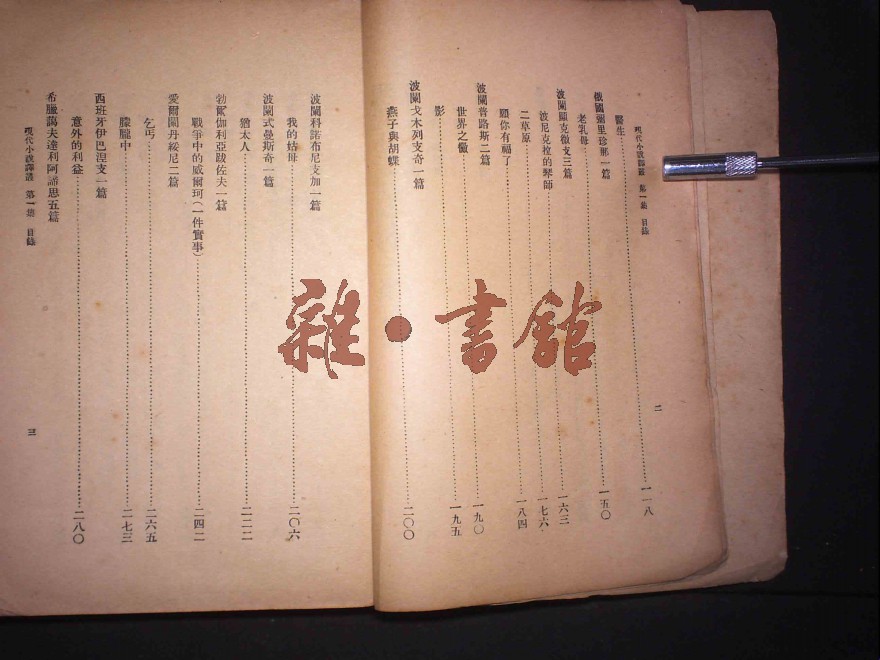 現代小說譯叢 第一集 目錄
二
醫生……一一八
俄國彌里珍那一篇
老乳母……一五〇
波蘭顯克微支三篇
波尼克拉的琴師……一六三
二草原……一七六
願你有福了……一八四
波蘭普路斯二篇
世界之黴……一九〇
影……一九五
波蘭戈木列支奇一篇
燕子與胡蝶……二〇〇
波蘭科諾布尼支加一篇
我的姑母……二〇六
波蘭式曼斯奇一篇
猶太人……二二二
勃爾伽利亞跋佐夫一篇
戰爭中的威爾珂(一件實事)……二四二
愛爾蘭丹綏尼二篇
乞丐……二六五
朦朧中……二七三
西班牙伊巴涅支一篇
意外的利益……二八〇
希臘藹夫達利阿諦思五篇
現代小說譯叢 第一集 目錄
三
雜·書館